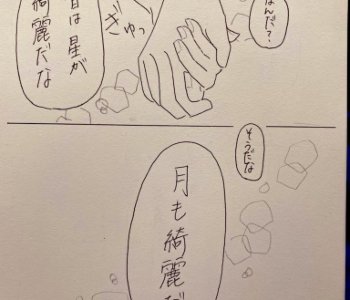 なんだ?
ぎゅっ
日は星が
綺麗だな
そうだな
月も綺麗だ